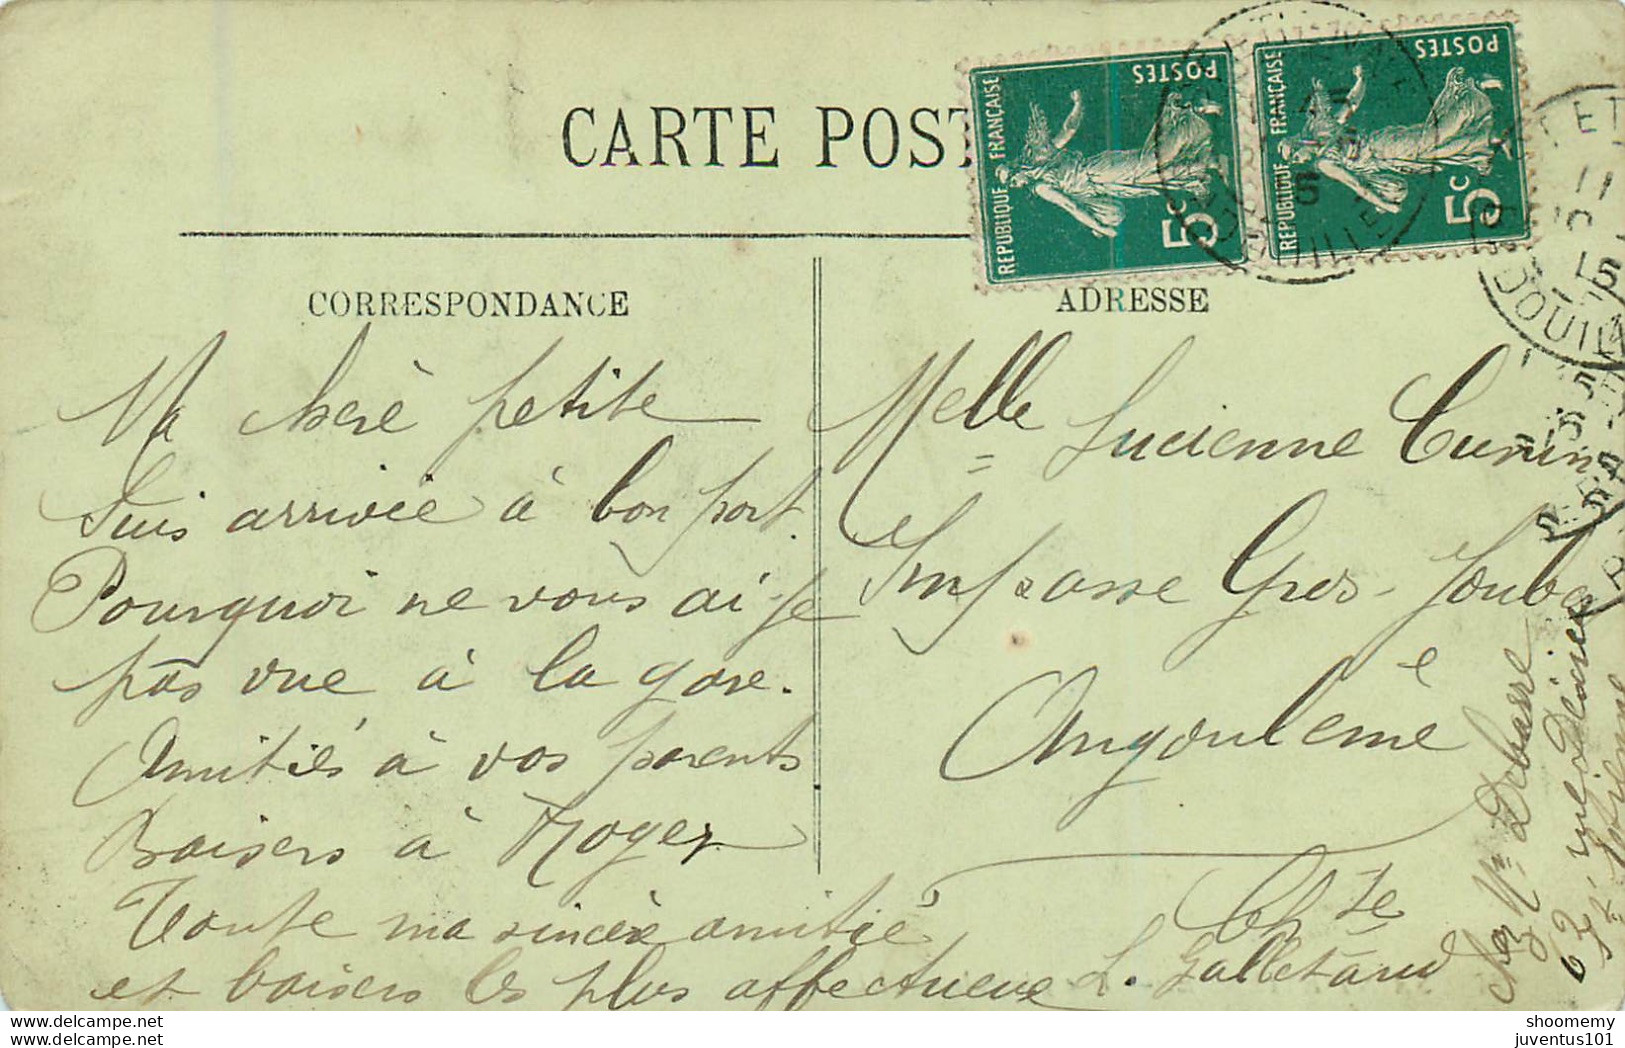 CARTE POST
CORRESPONDANCE
Ma cherè petite
Suis arrivée à bon port.
Pourquoi ne vous ai-je
pas vue à la gare.
Amitiés à vos parents
Baisers à Roger
Toute ma sincère amitié
et baisers les plus affectueux
L. Galletaud
ADRESSE
Melle Lucienne
Impasse Gros-
Angoulème
POSTES
REPUBLIQUE FRANÇAISE
5c
POSTES
REPUBLIQUE FRANÇAISE
5c
chez Mr Debarre
63 rue
St Etienne
shoomemy
juventus101
juventus101